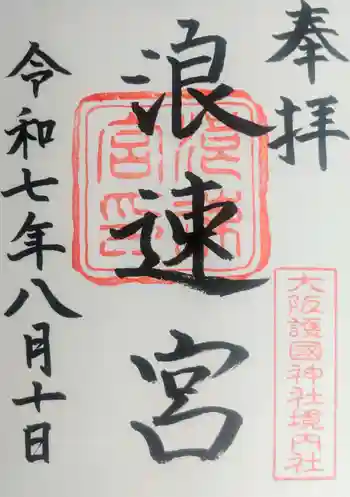 奉拝
大阪護國神社境内社
浪速宮
令和七年八月十日